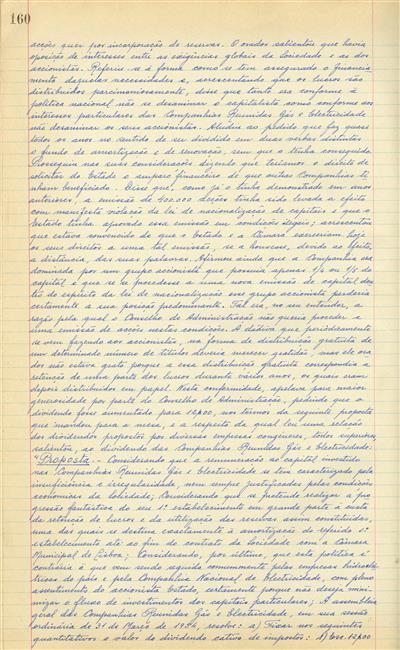 160
acções quer por incorporação de reservas. O orador salientou que havia
oposição de interesses entre as exigências globais da Sociedade e as dos
accionistas. Referiu-se à forma como se tem assegurado o financia-
mento daquelas necessidades e, acrescentando que os lucros são
distribuidos parcimoniosamente, disse que tanto era conforme à
política nacional não se desanimar o capitalista como conforme aos
interesses particulares das Companhias Reunidas Gás e Electricidade
não desanimar os seus accionistas. Aludiu ao pedido que faz quase
todos os anos no sentido de ser dividido em duas verbas distintas
o fundo de amortização e de renovação, sem que o tenha conseguido.
Prosseguiu nas suas considerações dizendo que teríamos o direito de
solicitar do Estado o amparo financeiro de que outras Companhias ti-
nham beneficiado. Disse que, como já o tinha demonstrado em anos
anteriores, a emissão de 400.000 acções tinha sido levada a efeito
com manifesta violação da lei de nacionalização de capitais e que o
Estado tinha aprovado essa emissão em condições ilegais; acrescentou
que estava convencido de que o Estado e a Câmara exerceriam hoje
os seus direitos a uma tal emissão, se a houvesse, devido ao efeito,
a distância, das suas palavras. Afirmou ainda que a Companhia era
dominada por um grupo accionista que possuia apenas 1/4 ou 1/5 do
capital e que se se procedesse a uma nova emissão de capital den-
tro do espírito da lei de nacionalização esse grupo accionista perderia
certamente a sua posição predominante. Tal era, no seu entender, a
razão pela qual o Conselho de Administração não queria proceder a
uma emissão de acções nestas condições. A dádiva que periòdicamente
se vem fazendo aos accionistas, na forma de distribuição gratuita de
um determinado número de títulos deveria merecer gratidão, mas ele ora-
dor não estava grato porque a essa distribuição gratuita correspondia a
retenção de uma parte dos lucros durante vários anos, os quais eram
depois distribuidos em papel. Nesta conformidade, apelava para maior
generosidade por parte do Conselho de Administração, pedindo que o
dividendo fosse aumentado para 12$00, nos termos da seguinte proposta
que mandou para a mesa, e a respeito da qual leu uma relação
dos dividendos propostos por diversas empresas congéneres, todos superiores,
salientou, ao dividendo das Companhias Reunidas Gás e Electricidade:
"Proposta - Considerando que a remuneração ao capital investido
nas Companhias Reunidas Gás e Electricidade se tem caracterizado pela
insuficiência e irregularidade, nem sempre justificadas pelas condições
económicas da Sociedade; Considerando que se pretende realizar a pro-
gressão fantástica do seu 1º estabelecimento em grande parte à custa
da retenção de lucros e da utilização das reservas assim constituidas,
uma das quais se destina exactamente à amortização do referido 1º
estabelecimento até ao fim do contrato da Sociedade com a Câmara
Municipal de Lisboa; Considerando, por último, que esta política é
contrária à que vem sendo seguida comummente pelas empresas hidroeléc-
tricas do país e pela Companhia Nacional de Electricidade, com pleno
assentimento do accionista Estado, certamente porque não deseja mini-
mizar o fluxo de investimentos dos capitais particulares; A assembleia
geral das Companhias Reunidas Gás e Electricidade, em sua sessão
ordinária de 31 de Março de 1954, resolve: a) Fixar nos seguintes
quantitativos o valor do dividendo cativo de impostos: A) Esc. 12$00